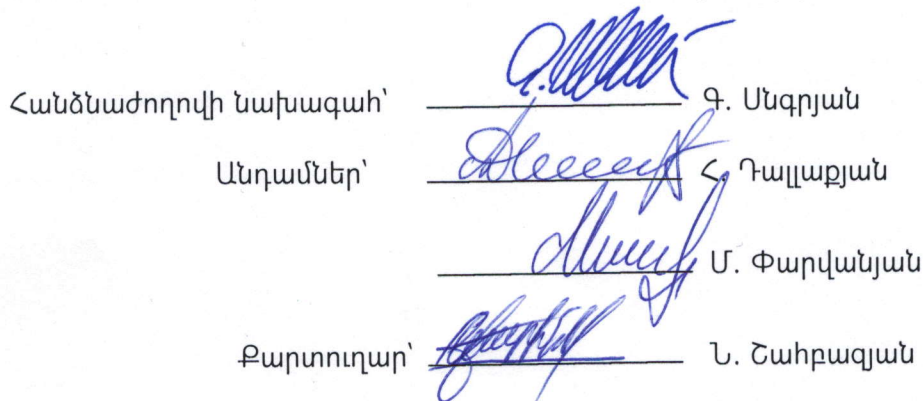 Հանձնաժողովի նախագահ՝ Գ. Մնգրյան
Անդամներ՝ Հ. Դալլաքյան
Մ. Փարվանյան
Քարտուղար՝ Ն. Շահբազյան